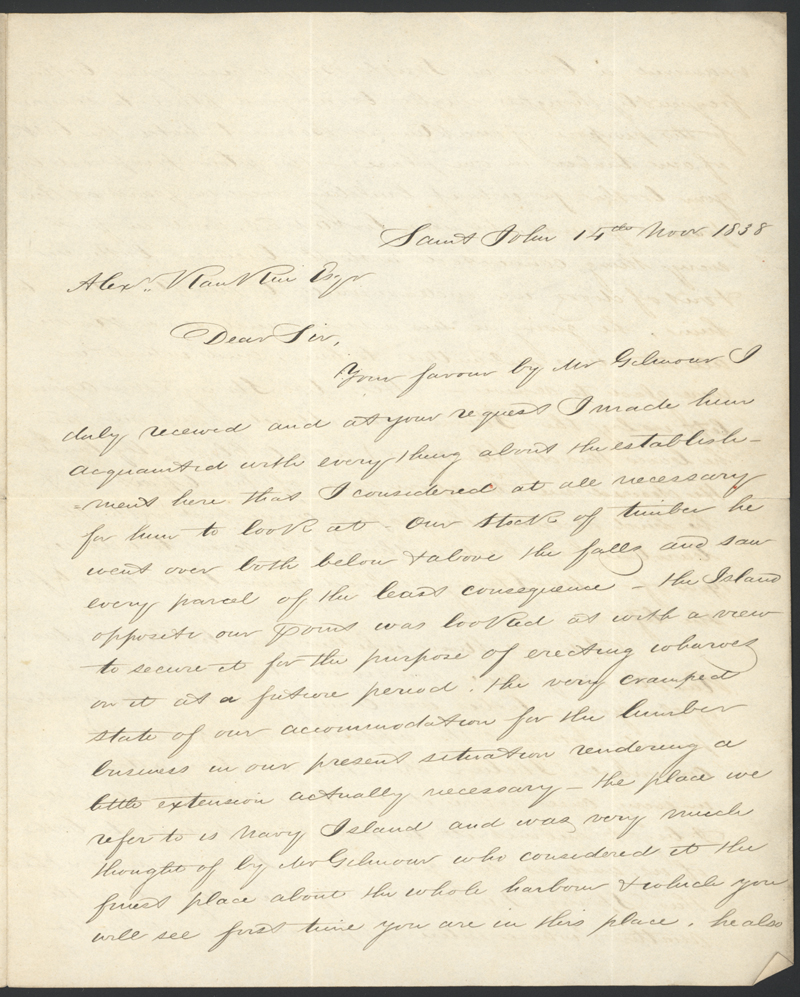 Saint John 14th Novr 1838
Alexr. Rankin Esqr
Dear Sir,
Your favour by Mr Gilmour I
duly received and at your request I made him
acquainted with every thing about the establish-
=ment here that I considered at all necessary
for him to look at - Our stock of timber he
went over both below & above the falls and saw
every parcel of the least consequence - the Island
opposite our Point was looked at with a view
to secure it for the purpose of erecting wharves
on it at a future period. the very cramped
state of our accommodation for the lumber
business in our present situation rendering a
little extension actually necessary - the place we
refer to is Navy Island and was very much
thought of by Mr Gilmour who considered it the
finest place about the whole harbour & which you
will see first time you are in this place. he also